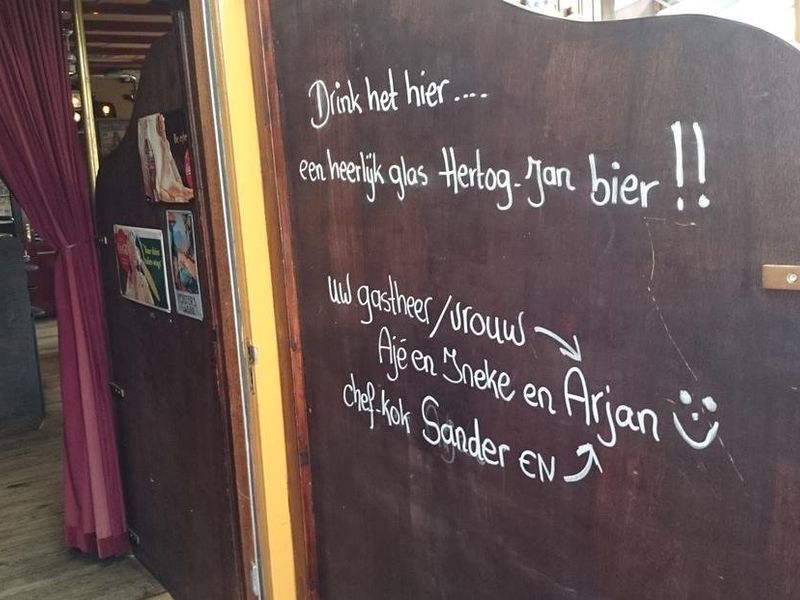 Drink het hier....
een heerlijk glas Hertog-Jan bier!!
uw gastheer/vrouw
Ajé en Ineke en Arjan
chef-kok Sander EN